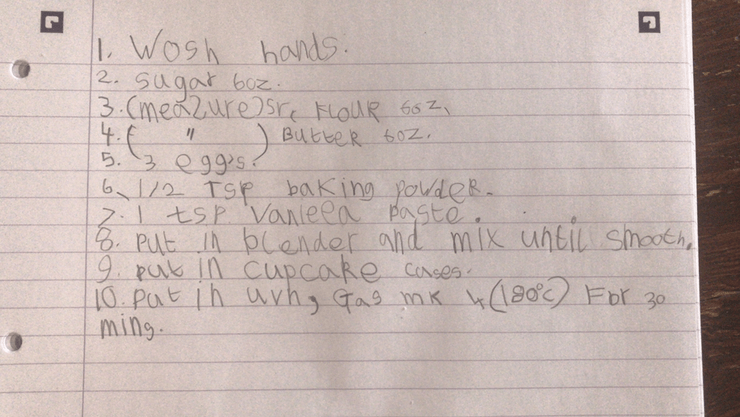 1. Wosh hands.
2. sugar 6oz.
3. (meaZure) sr, FLOUR 6oZ.
4. ( " ) BUtteR 6oZ.
5. 3 eggs.
6. 1/2 TSP baking powdeR.
7. 1 tsp Vanleea paste.
8. put in blender and mix until smooth.
9. put in cupcake cases.
10. put in uvh, Gas mk 4 (180°c) For 30
ming.